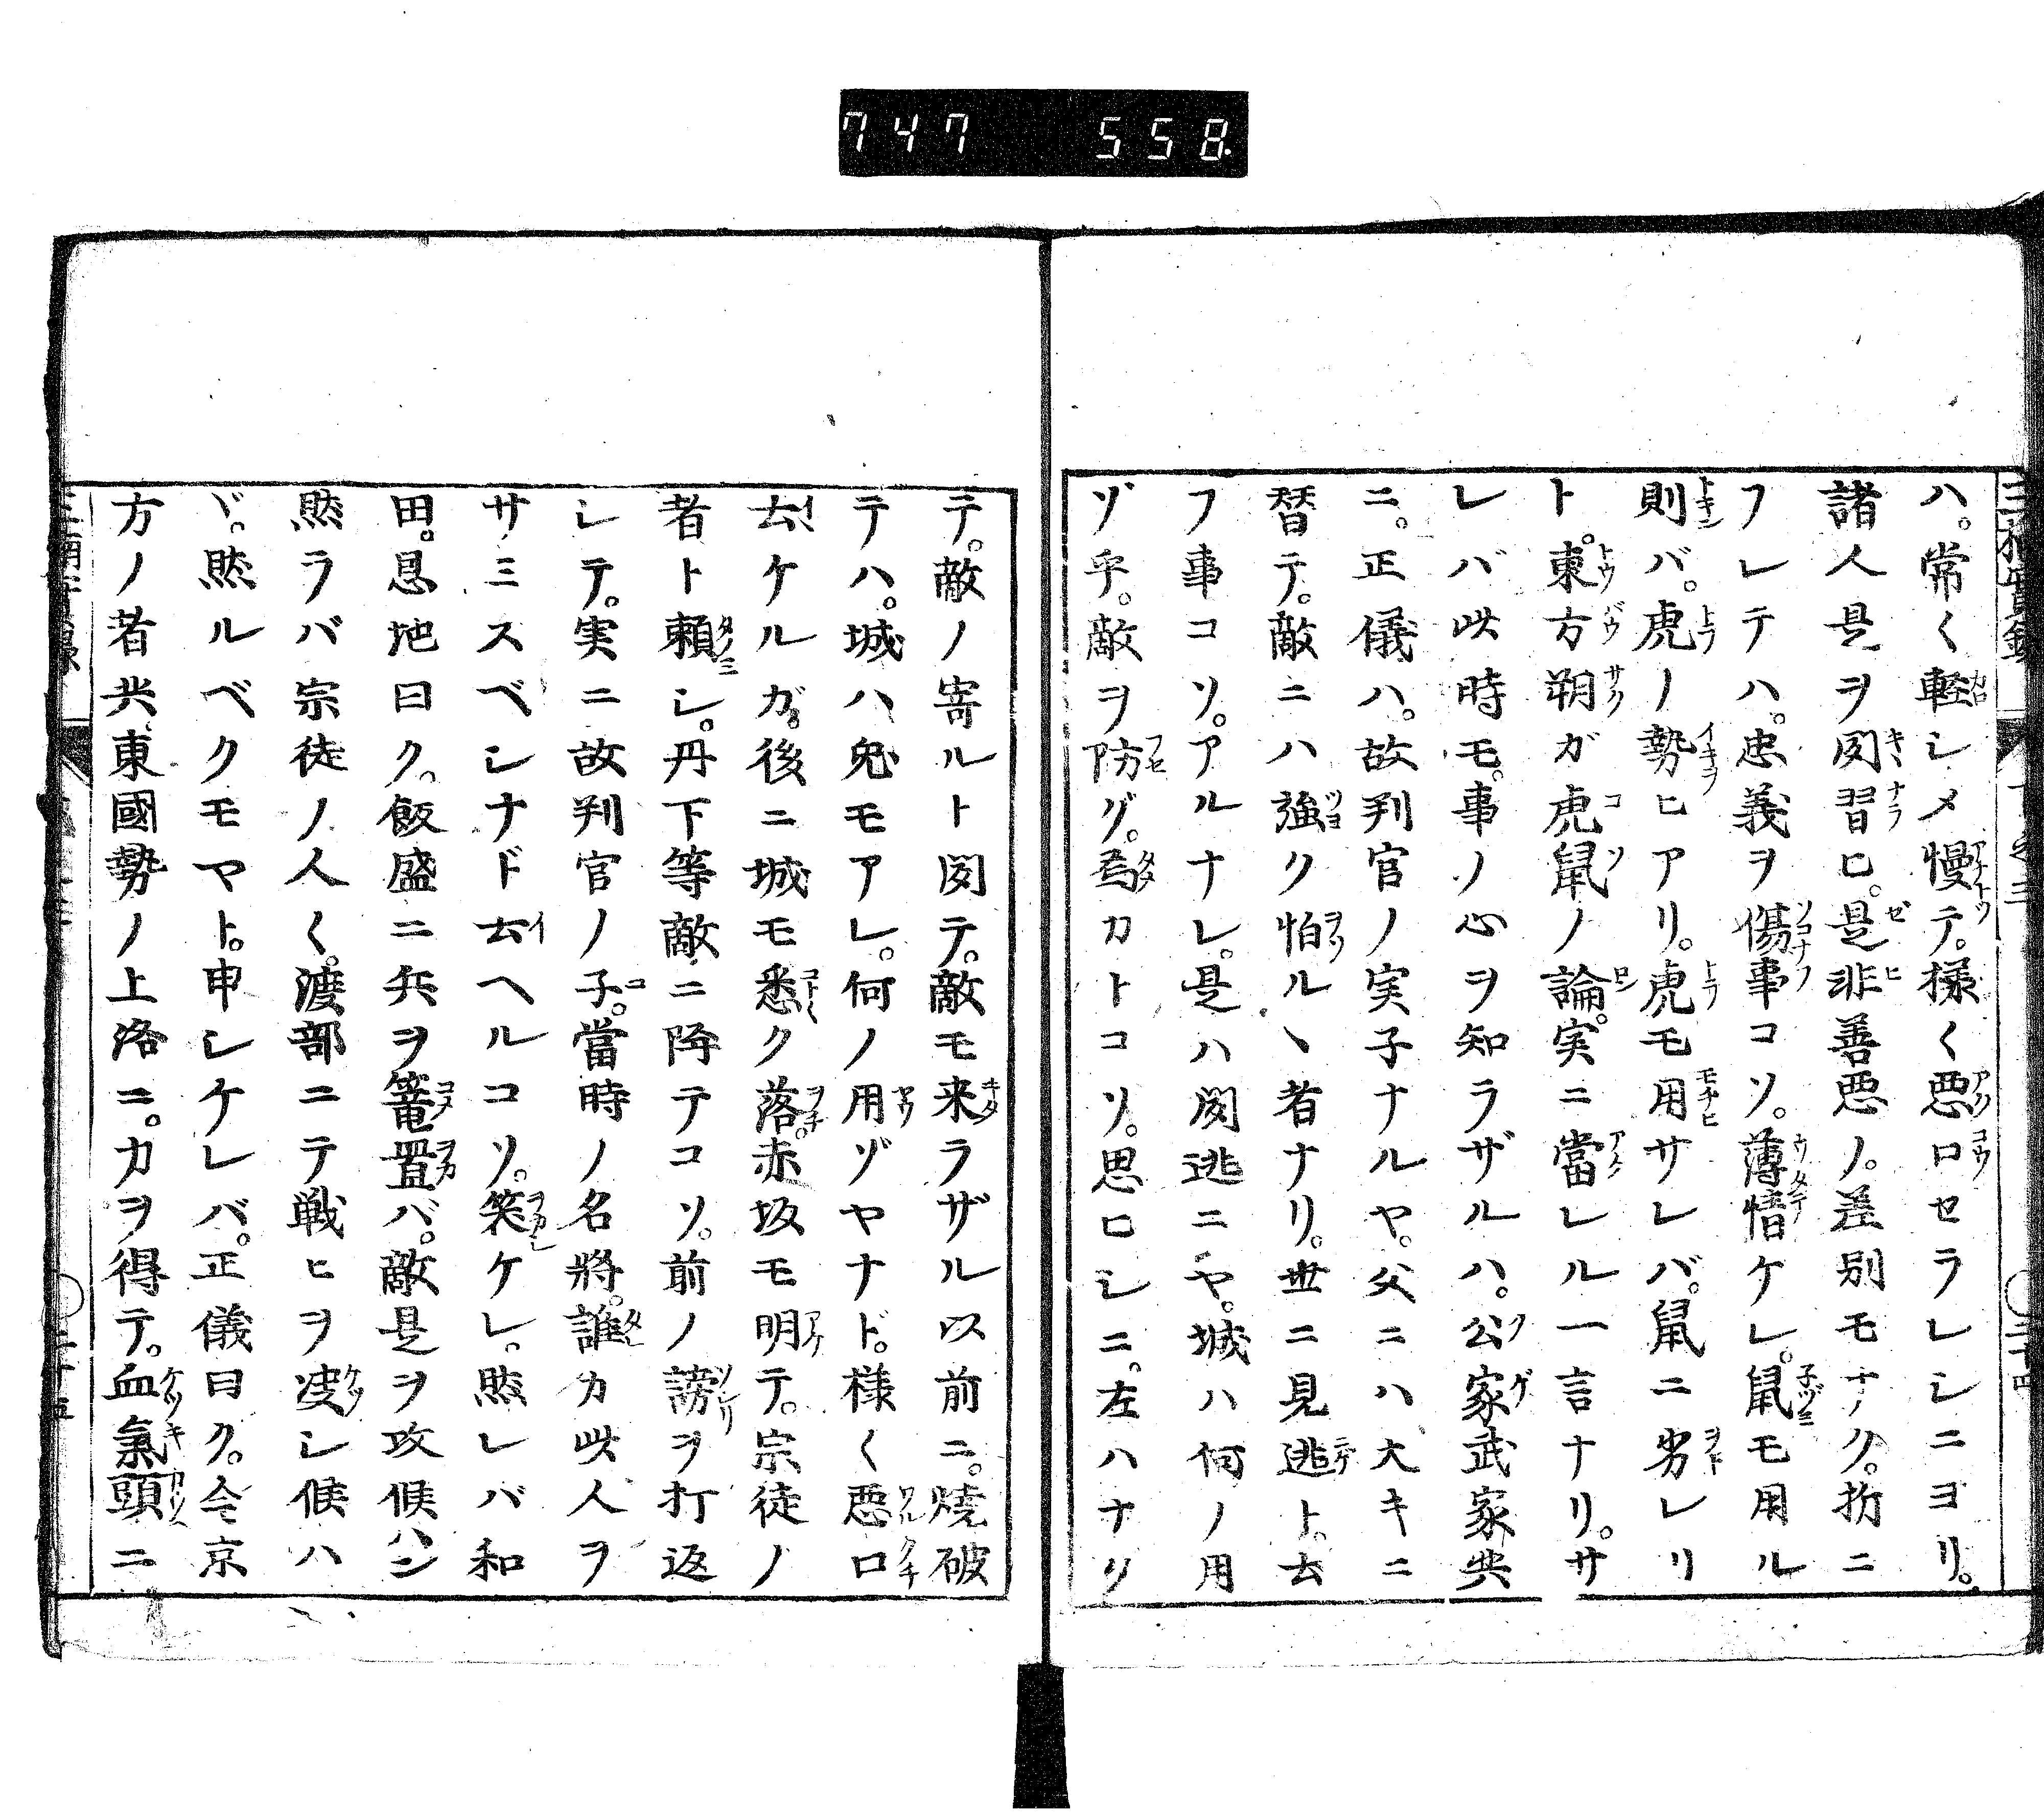 747 558.
ハ。常〱軽シメ慢テ。様〱悪口セラレシニヨリ。
諸人是ヲ聞習ヒ。是非善悪ノ。差別モナク。折ニ
フレテハ。忠義ヲ傷事コソ。薄情ケレ。鼠モ用ル
則バ。虎ノ勢ヒアリ。虎モ用サレバ。鼠ニ劣レリ
ト。東方朔ガ虎鼠ノ論。実ニ當レル一言ナリ。サ
レバ此時モ。事ノ心ヲ知ラザルハ。公家武家共
ニ。正儀ハ。故判官ノ実子ナルヤ。父ニハ大キニ
替テ。敵ニハ強ク怕ルヽ者ナリ。世ニ見逃ト。云
フ事コソ。アルナレ。是ハ聞逃ニヤ。城ハ何ノ用
ゾ乎。敵ヲ防グ。為カトコソ。思ヒシニ。左ハナク
テ。敵ノ寄ルト聞テ。敵モ来ラザル以前ニ。焼破
テハ。城ハ兎モアレ。何ノ用ゾヤナド。様〱悪口
云ケルガ。後ニ城モ悉ク落。赤坂モ明テ。宗徒ノ
者ト頼シ。丹下等敵ニ降テコソ。前ノ謗ヲ打返
シテ。実ニ故判官ノ子。當時ノ名將。誰カ此人ヲ
サミスベシナド云ヘルコソ。笑ケレ。然レバ和
田。恩地曰ク。飯盛ニ兵ヲ篭置バ。敵是ヲ攻候ハン
然ラバ宗徒ノ人〱。渡部ニテ戦ヒヲ决シ候ハ
バ。然ルベクモヤト。申シケレバ。正儀曰ク。今京
方ノ者共。東國勢ノ上洛ニ。力ヲ得テ。血氣頭ニ